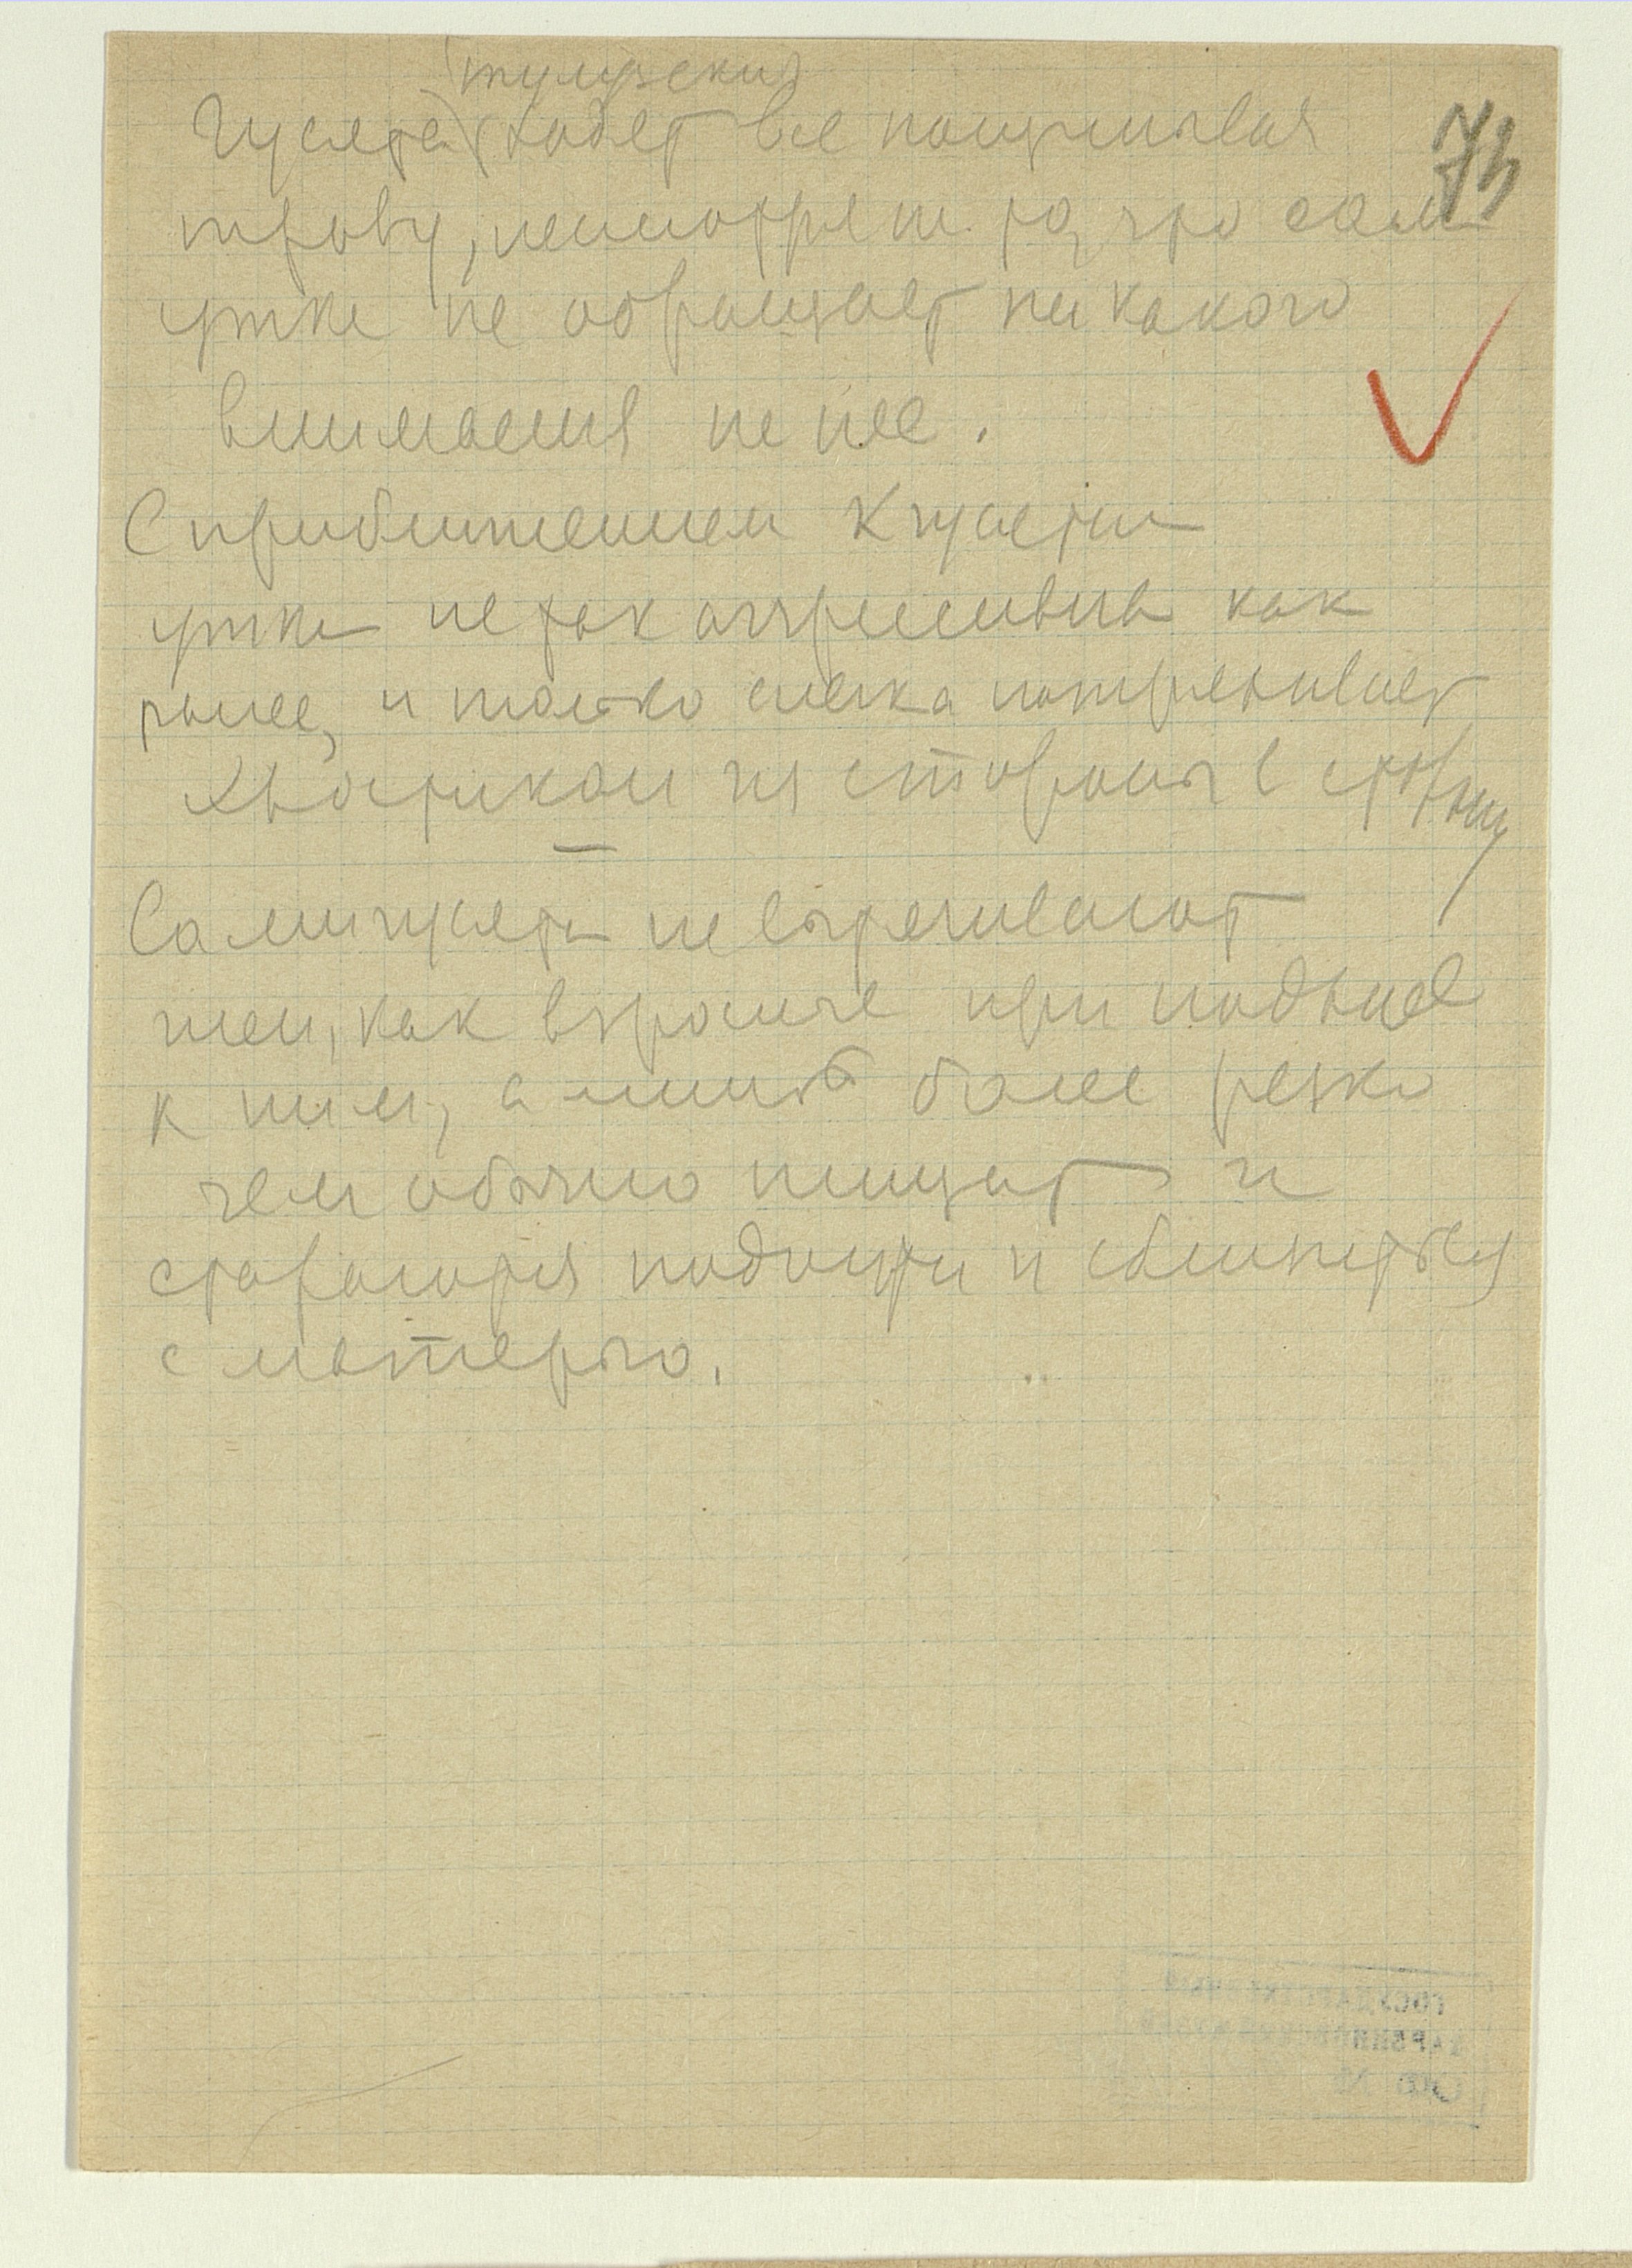 тулузский
Гусята ходят все пощипывая
74
траву, несмотря на то, что сами
утке не обращает никакого
внимания на нее.
С приближением к гусятам
утка не так агрессивна как
ранее, и только слегка потряхивает
хвостиком из стороны в сторону
Сами гусята не вытягивают
шеи, как взрослые при подходе
к ним, а лишь более резко
чем обычно пищат и
стараются подойти и сблизиться
с матерью.
ГОСУДАРСТВЕННЫЙ
ДАРВИНОВСКИЙ МУЗЕЙ